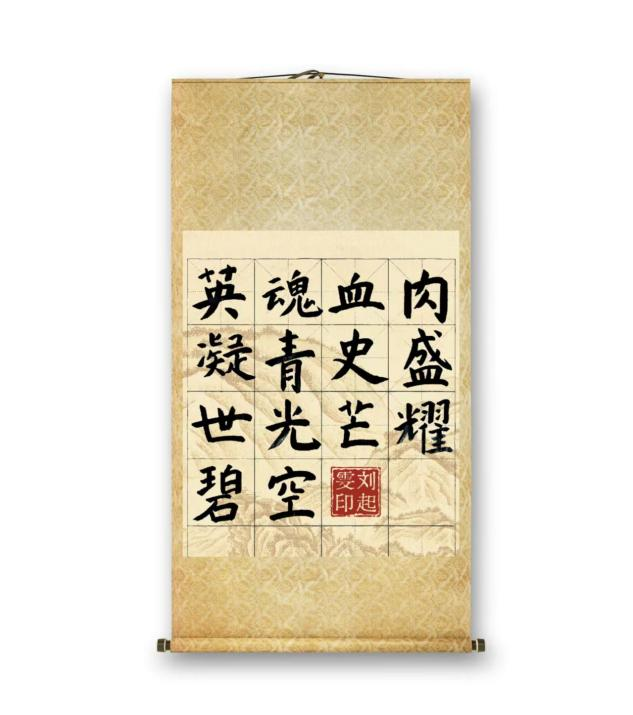 英魂血肉
凝青史盛
世光芒耀
碧空
刘起雯印